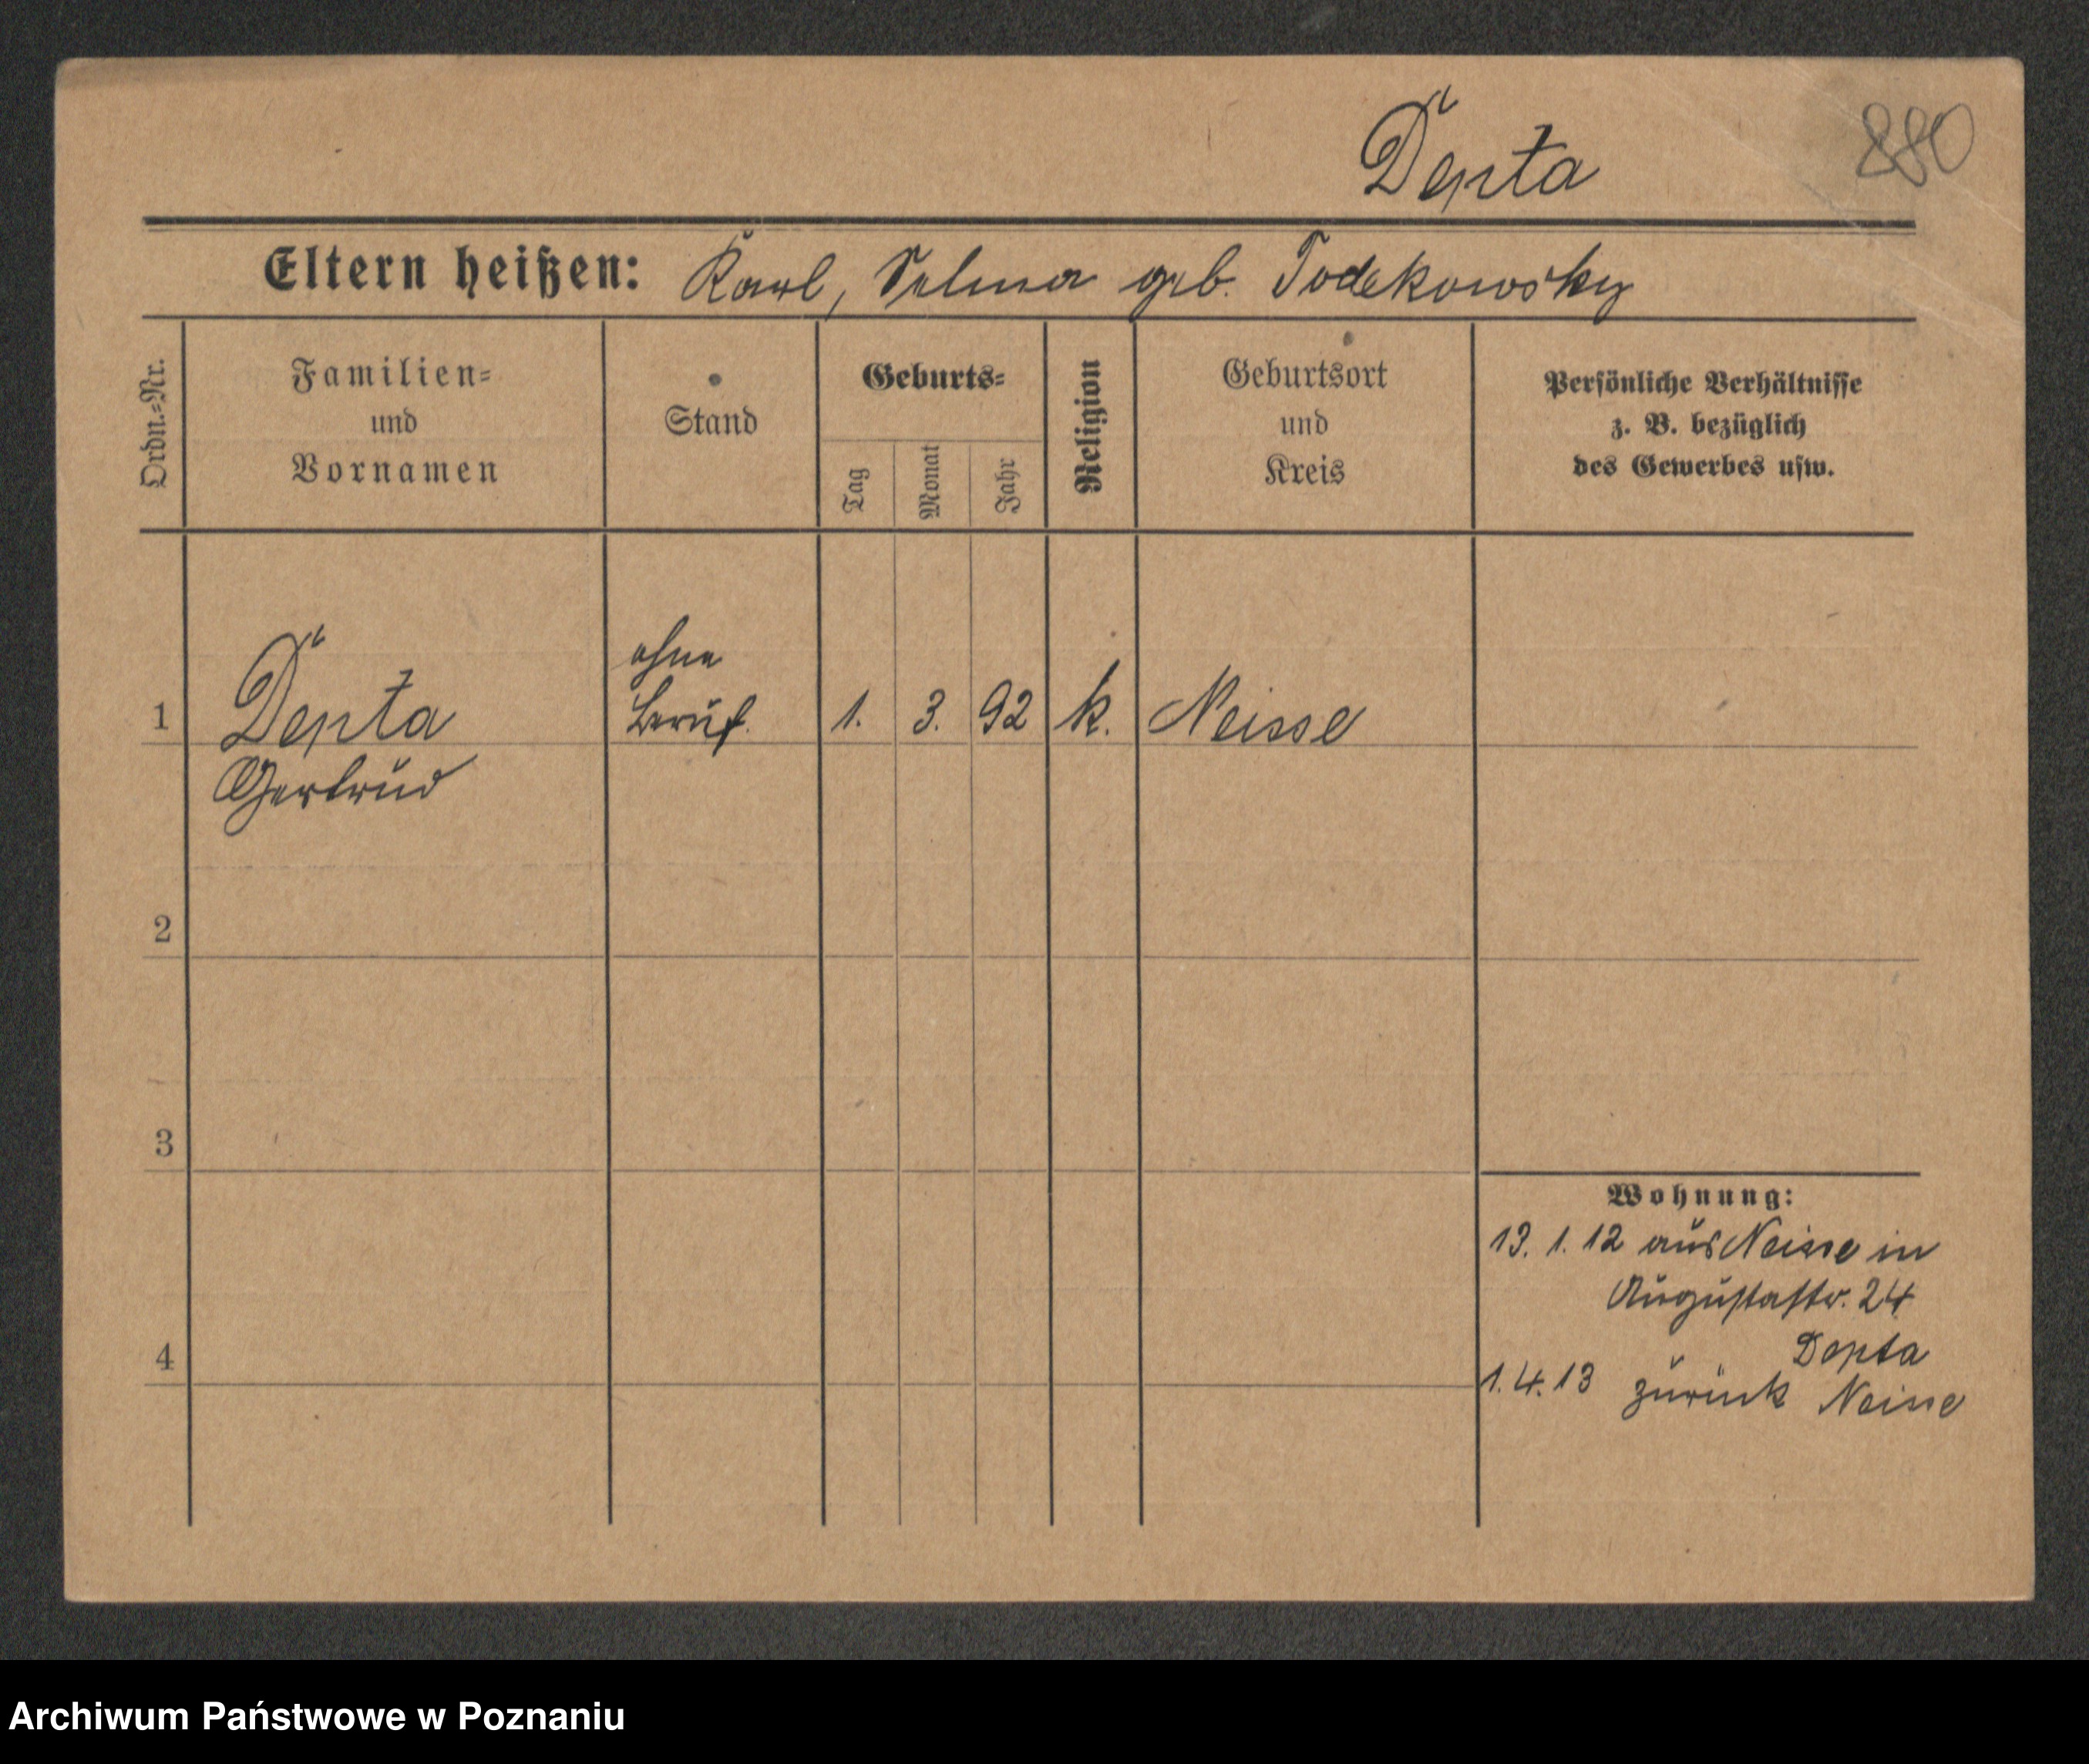 Depta
880
Eltern heißen: Karl, Selma geb. Todekowsky
Ordn.-Nr.
Familien-
und
Vornamen
Stand
Geburts-
Tag
Monat
Jahr
Religion
Geburtsort
und
Kreis
Persönliche Verhältnisse
z. B. bezüglich
des Gewerbes usw.
1
Depta
Gertrud
ohne
Beruf.
1. 3. 92
k.
Neisse
2
3
4
Wohnung:
13. 1. 12 aus Neisse in
Augustastr. 24
Depta
1. 4. 13 zurück Neisse
Archiwum Państwowe w Poznaniu